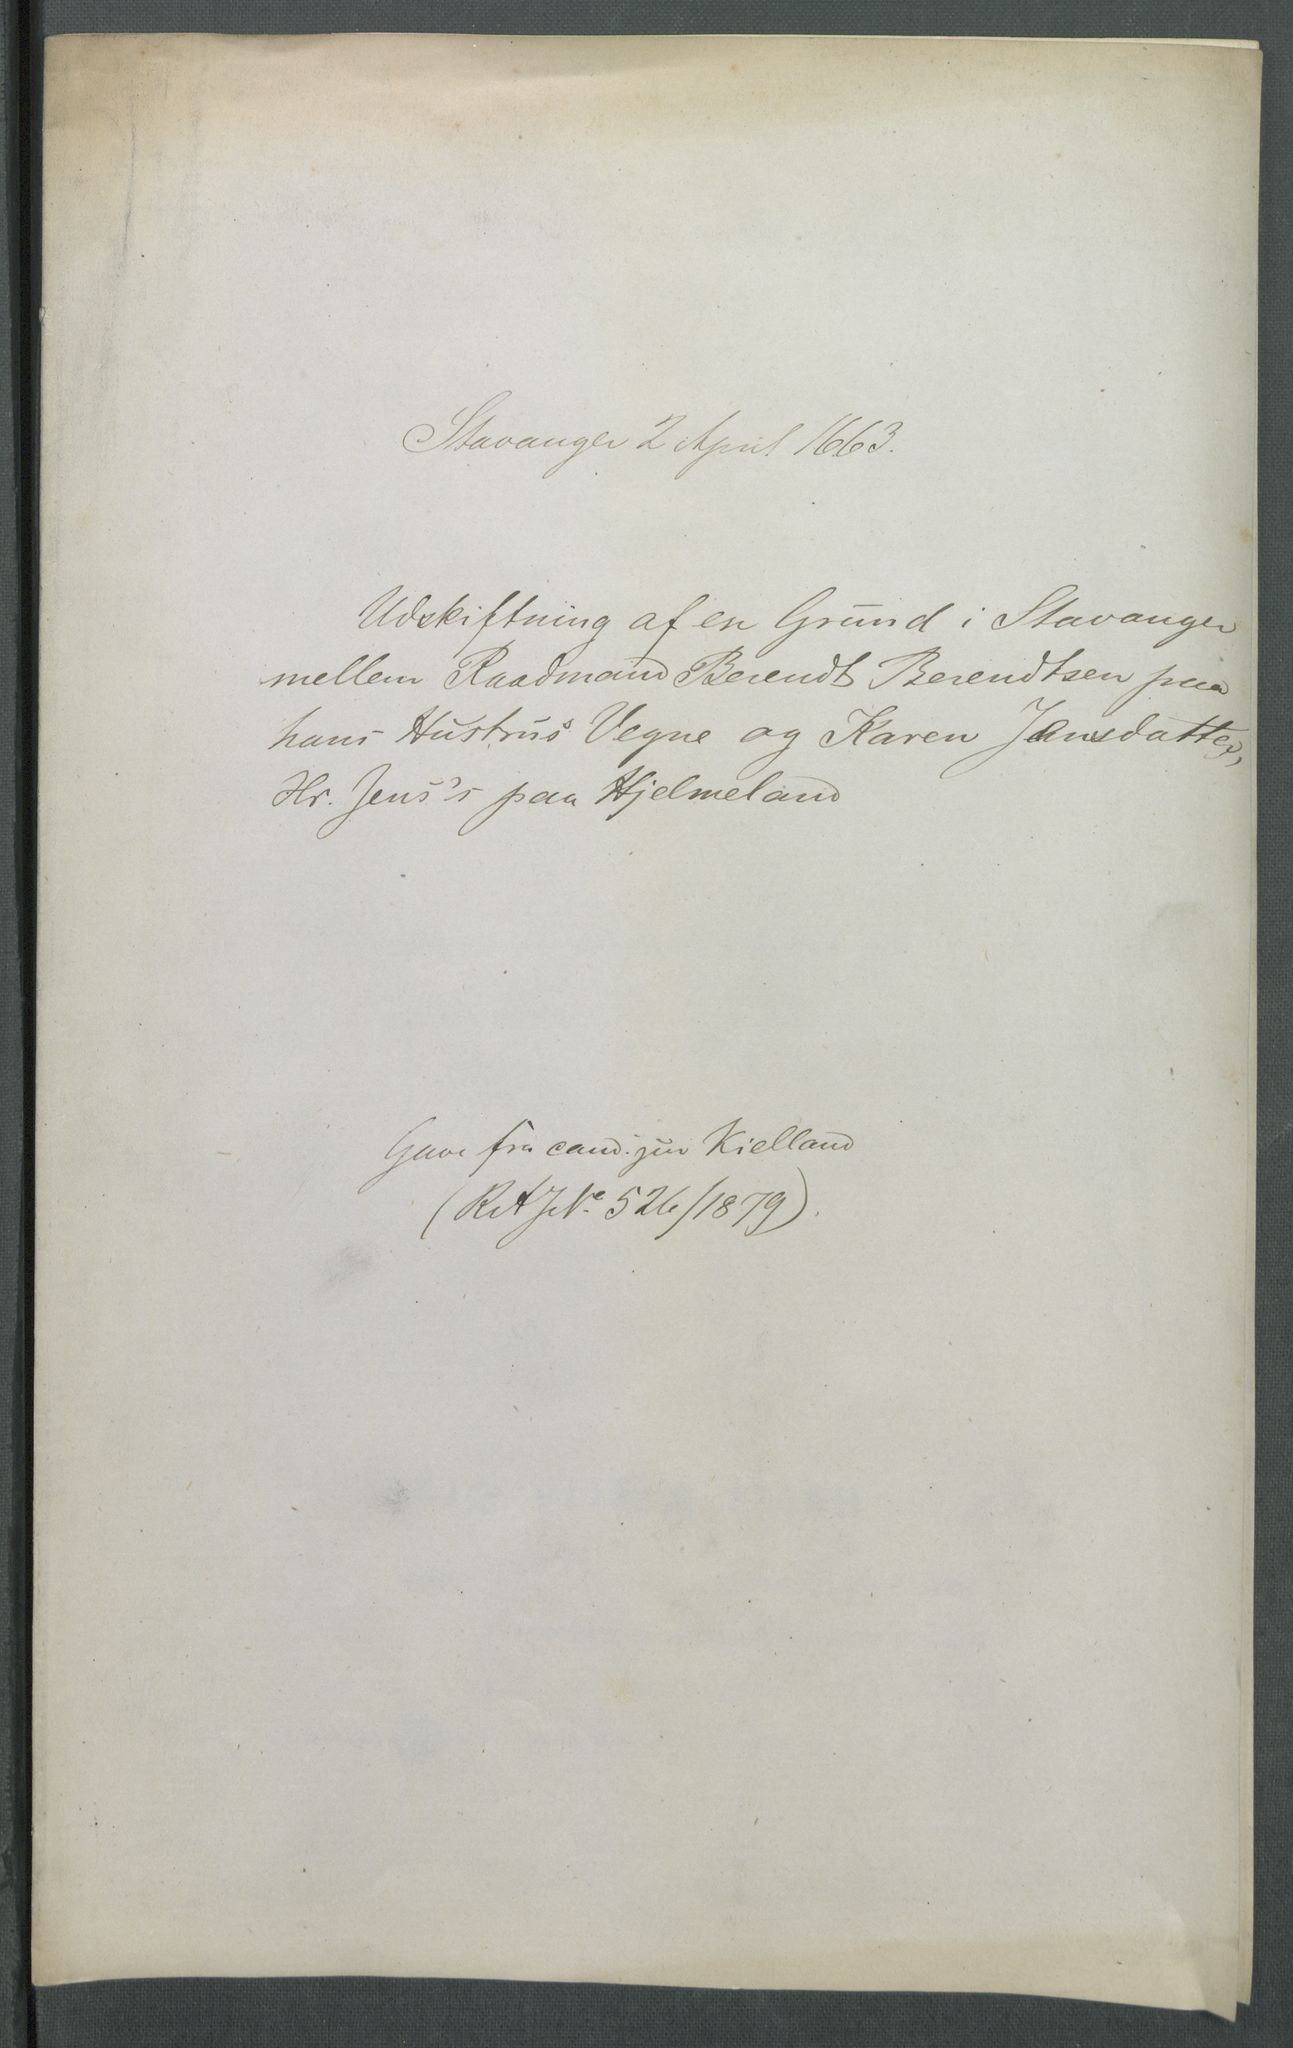 Stavanger 2 April 1663.
Udskiftning af en Grund i Stavanger
mellem Raadmand Berendt Berendtsen paa
hans Hustrus Vegne og Karen Jansdatter,
Hr. Jens's paa Hjelmeland
Gave fra cand. jur Kielland
(RA JNo 526/1879).